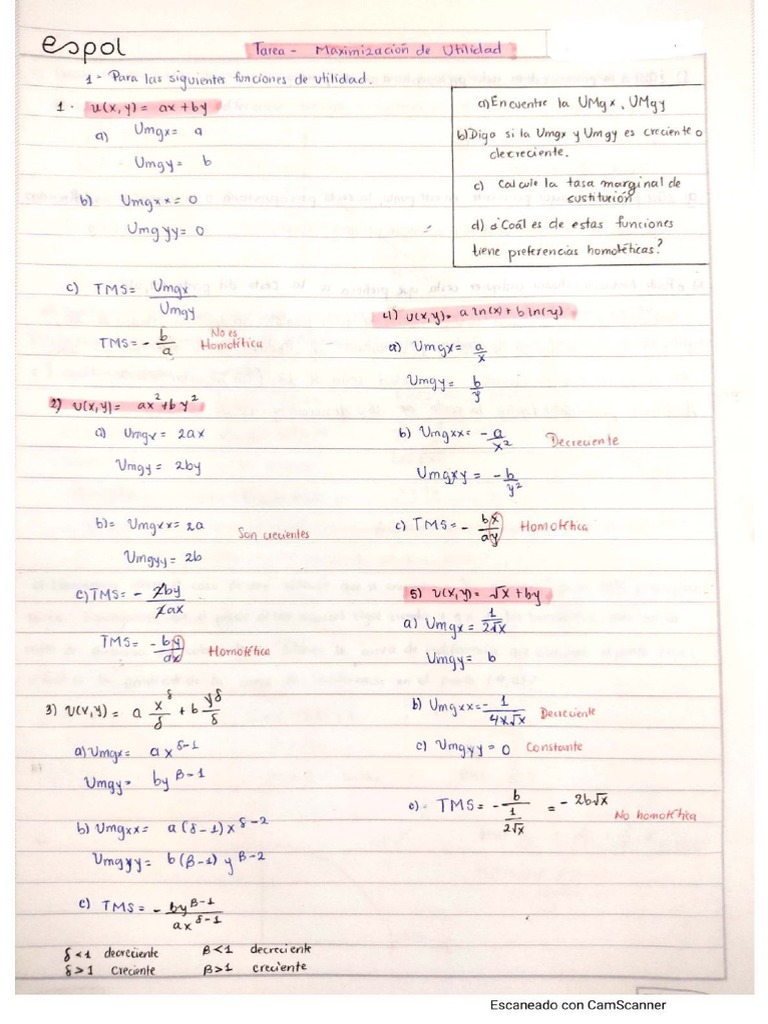 espol
Tarea - Maximización de Utilidad
1- Para las siguientes funciones de utilidad.
a) Encuentre la UMgx, UMgy
b) Diga si la Umgx y Umgy es creciente o
decreciente.
c) Calcule la tasa marginal de
sustitución
d) ¿Cuál es de estas funciones
tiene preferencias homotéticas?
1. u(x,y) = ax+by
a) Umgx = a
Umgy = b
b) Umgxx = 0
Umgyy = 0
c) TMS = Umgx / Umgy
TMS = - b/a No es Homotética
2) u(x,y) = ax² + by²
a) Umgx = 2ax
Umgy = 2by
b)= Umgxx = 2a Son crecientes
Umgyy = 2b
c) TMS = - 2by / 2ax
TMS = - by / ax Homotética
3) U(x,y) = a x^δ/δ + b y^δ/δ
a) Umgx = ax^δ-1
Umgy = by^β-1
b) Umgxx = a(δ-1)x^δ-2
Umgyy = b(β-1)y^β-2
c) TMS = - by^β-1 / ax^δ-1
δ<1 decreciente β<1 decreciente
δ>1 Creciente β>1 creciente
4) U(x,y) = a ln(x) + b ln(y)
a) Umgx = a/x
Umgy = b/y
b) Umgxx = - a/x² Decreciente
Umgxy = - b/y²
c) TMS = - bx/ay Homotética
5) U(x,y) = √x + by
a) Umgx = 1/2√x
Umgy = b
b) Umgxx = - 1/4x√x Decreciente
c) Umgyy = 0 Constante
c)- TMS = - b / 1/2√x = - 2b√x
No homotética
Escaneado con CamScanner